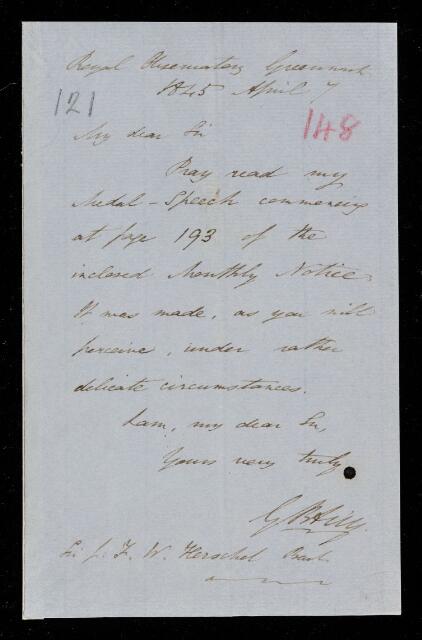 Royal Observatory Greenwich
1845 April 7
121
148
My dear Sir
Pray read my
Medal-Speech commencing
at page 193 of the
inclosed Monthly Notice.
It was made, as you will
perceive, under rather
delicate circumstances.
I am, my dear Sir,
Yours very truly
G B Airy.
Sir J. F. W. Herschel Bart.